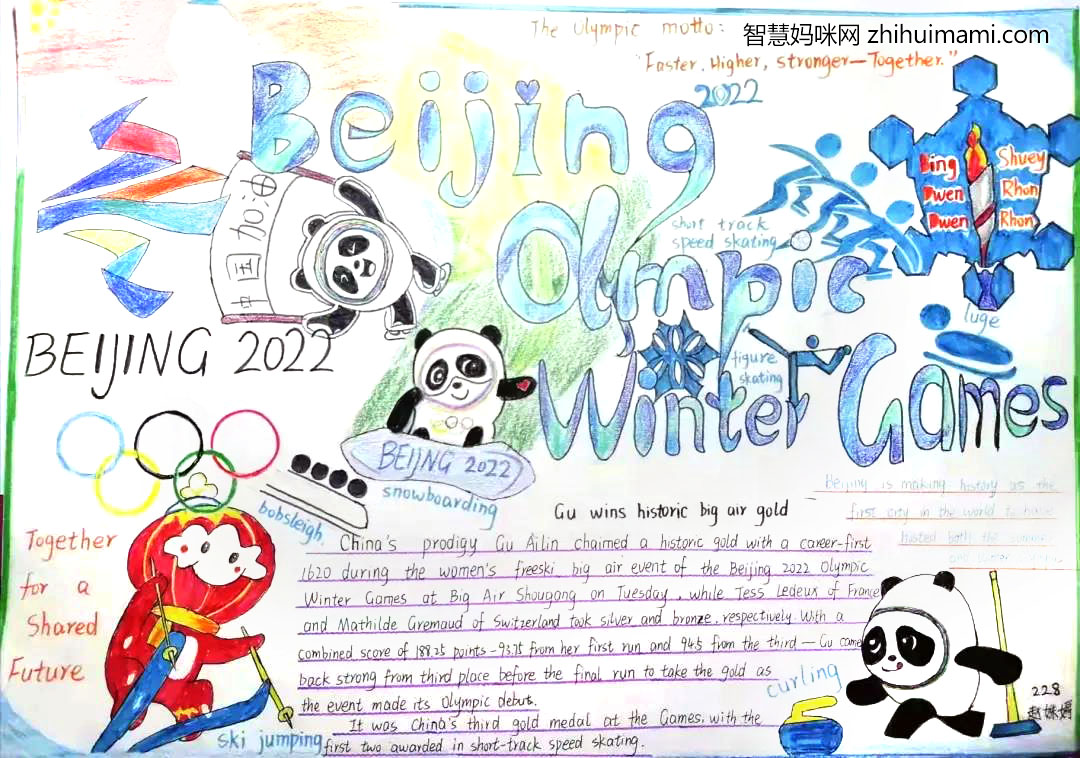 智慧妈咪网 zhihuimami.com
The Olympic motto:
"Faster, Higher, stronger—Together."
2022
Beijing
Olmpic
Winter Games
Bing
Dwen
Dwen
Shuey
Rhon
Rhon
short track
speed skating
luge
figure
skating
中国加油
BEIJING 2022
BEIJING 2022
snowboarding
bobsleigh
Together
for a
Shared
Future
ski jumping
Beijing is making history as the
first city in the world to have
hosted both the summer
and winter
Gu wins historic big air gold
China's prodigy Gu Ailin chaimed a historic gold with a career-first
1620 during the women's freeski big air event of the Beijing 2022 Olympic
Winter Games at Big Air Shougang on Tuesday, while Tess Ledeux of France
and Mathilde Gremaud of Switzerland took silver and bronze, respectively. With a
combined score of 188.25 points-93.75 from her first run and 94.5 from the third—Gu came
back strong from third place before the final run to take the gold as
the event made its Olympic debut.
It was China's third gold medal at the Games, with the
first two awarded in short-track speed skating.
curling
228